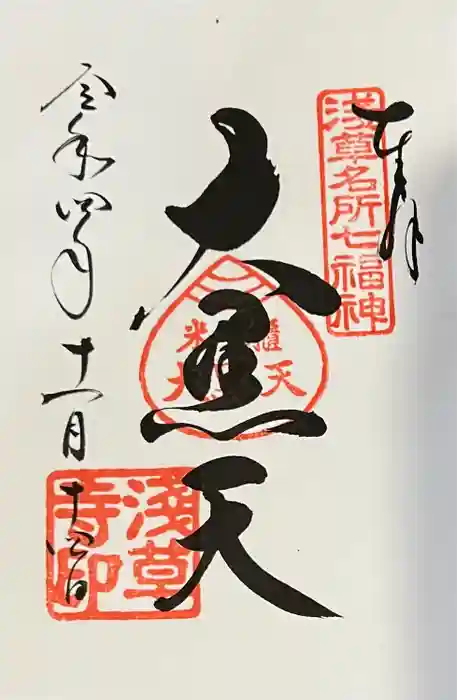 奉拝
浅草名所七福神
大黒天
令和四年十一月十四日
淺草
寺印